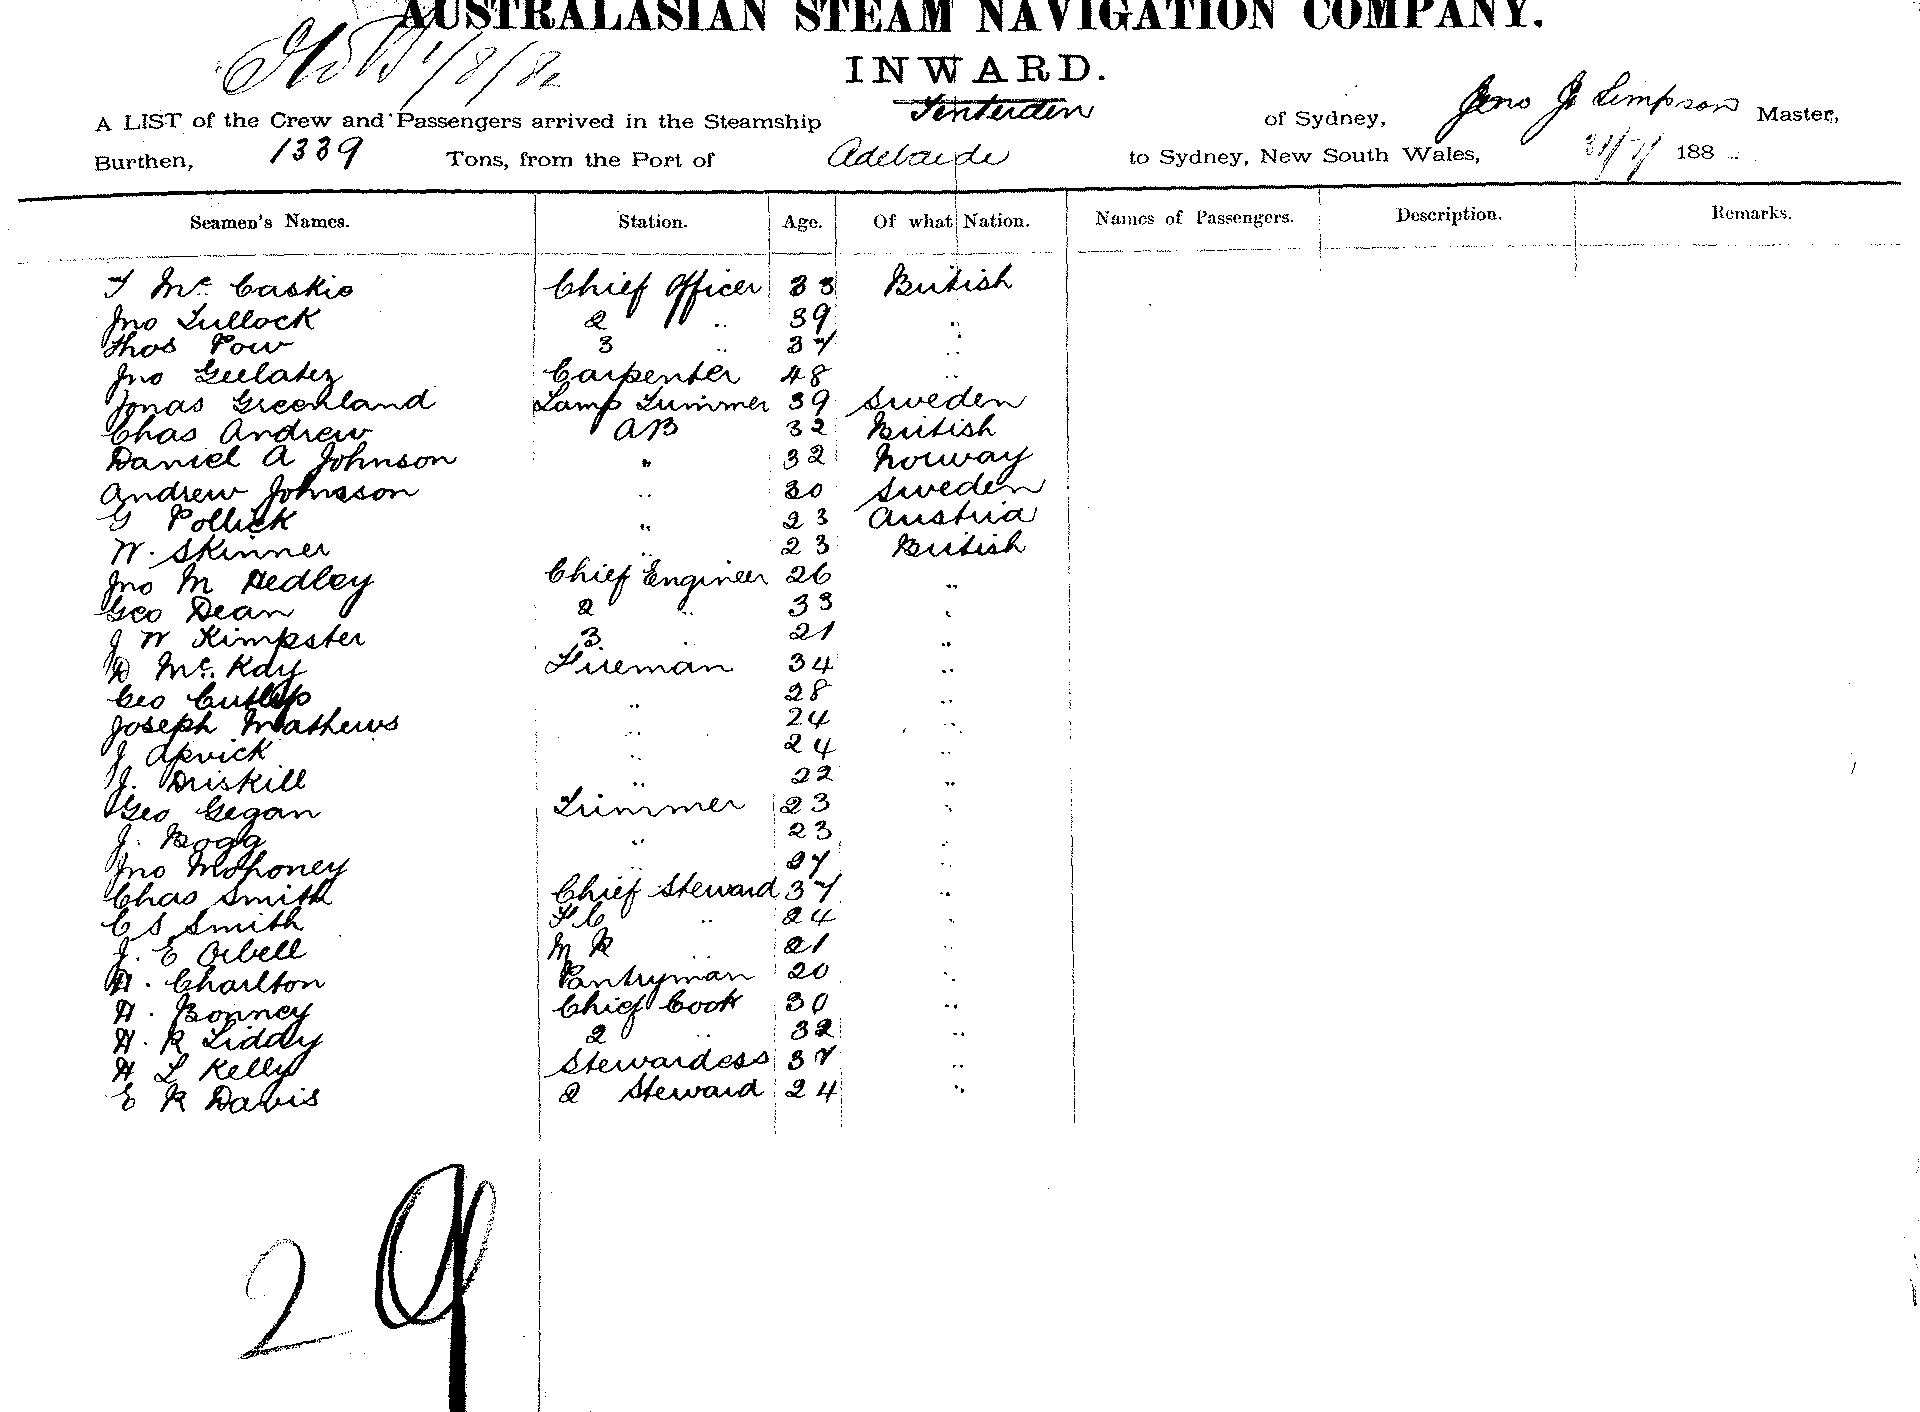 AUSTRALASIAN STEAM NAVIGATION COMPANY.
1/8/82
INWARD.
A LIST of the Crew and Passengers arrived in the Steamship Tenterden of Sydney, Jno J Simpson Master,
Burthen, 1339 Tons, from the Port of Adelaide to Sydney, New South Wales, 31/7/ 188
Seamen's Names. Station. Age. Of what Nation. Names of Passengers. Description. Remarks.
T Mc Caskie Chief Officer 33 British
Jno Tullock 2 " 39 "
Thos Pow 3 " 37 "
Jno Geelatez Carpenter 48 "
Jonas Greenland Lamp Trimmer 39 Sweden
Chas Andrew AB 32 British
Daniel A Johnson " 32 Norway
Andrew Johnsson " 30 Sweden
G Pollick " 23 Austria
W. Skinner " 23 British
Jno M Hedley Chief Engineer 26 "
Geo Dean 2 " 33 "
J W Kimpster 3 " 21 "
D Mc Kay Fireman 34 "
Geo Cutlip " 28 "
Joseph Mathews " 24 "
J Apvick " 24 "
J. Driskill " 22 "
Geo Gegan Trimmer 23 "
J. Bogg " 23 "
Jno Mahoney " 27 "
Chas Smith Chief Steward 37 "
C S Smith F C " 24 "
J. E Orbell M R " 21 "
H. Charlton Pantryman 20 "
H. Bonney Chief Cook 30 "
H. R Liddy 2 " 32 "
H L Kelly Stewardess 37 "
E R Davis 2 Steward 24 "
29